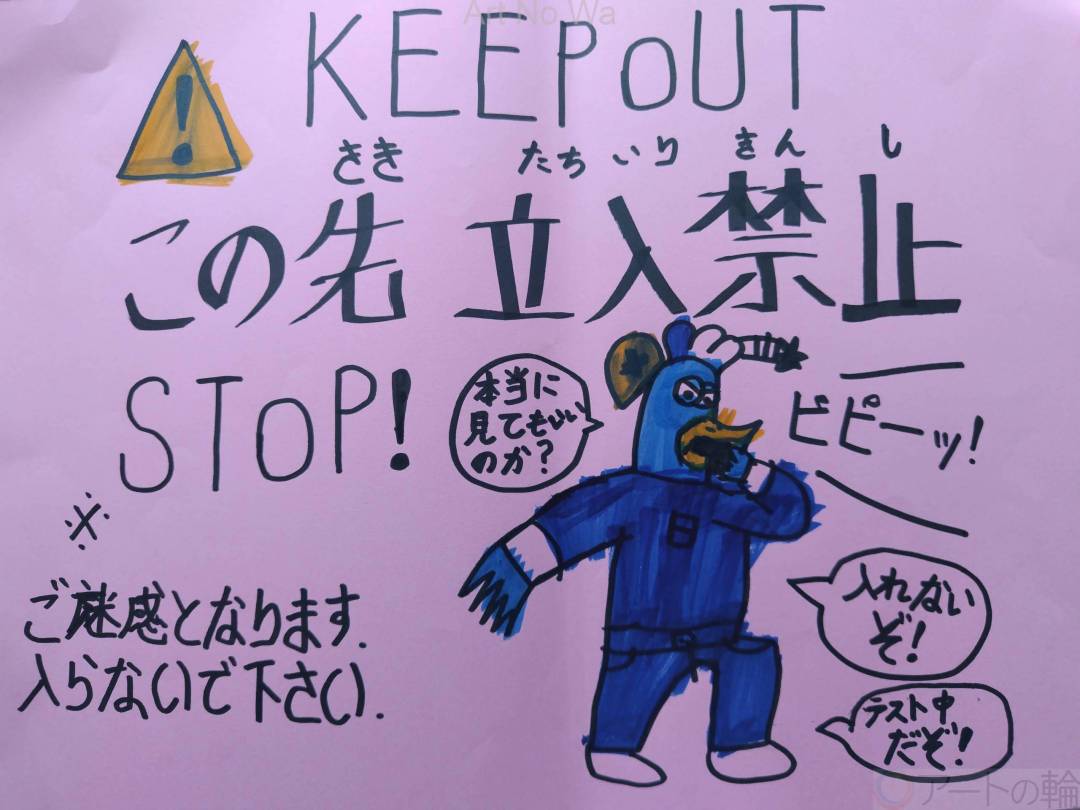 Art No Wa
KEEPoUT
さき たちいり きん し
この先 立入禁止
STOP!
本当に
見てもいい
のか?
ビピーッ!
※
ご迷惑となります.
入らないで下さい.
入れない
ぞ!
テスト中
だぞ!
アートの輪